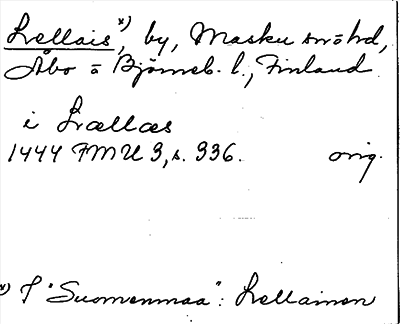 Lellais x), by, Masku sn o hd,
Åbo o Björneb. l., Finland
i Lrællæs
1444 FMU 3, s. 336. orig.
x) I "Suomenmaa": Lellainen